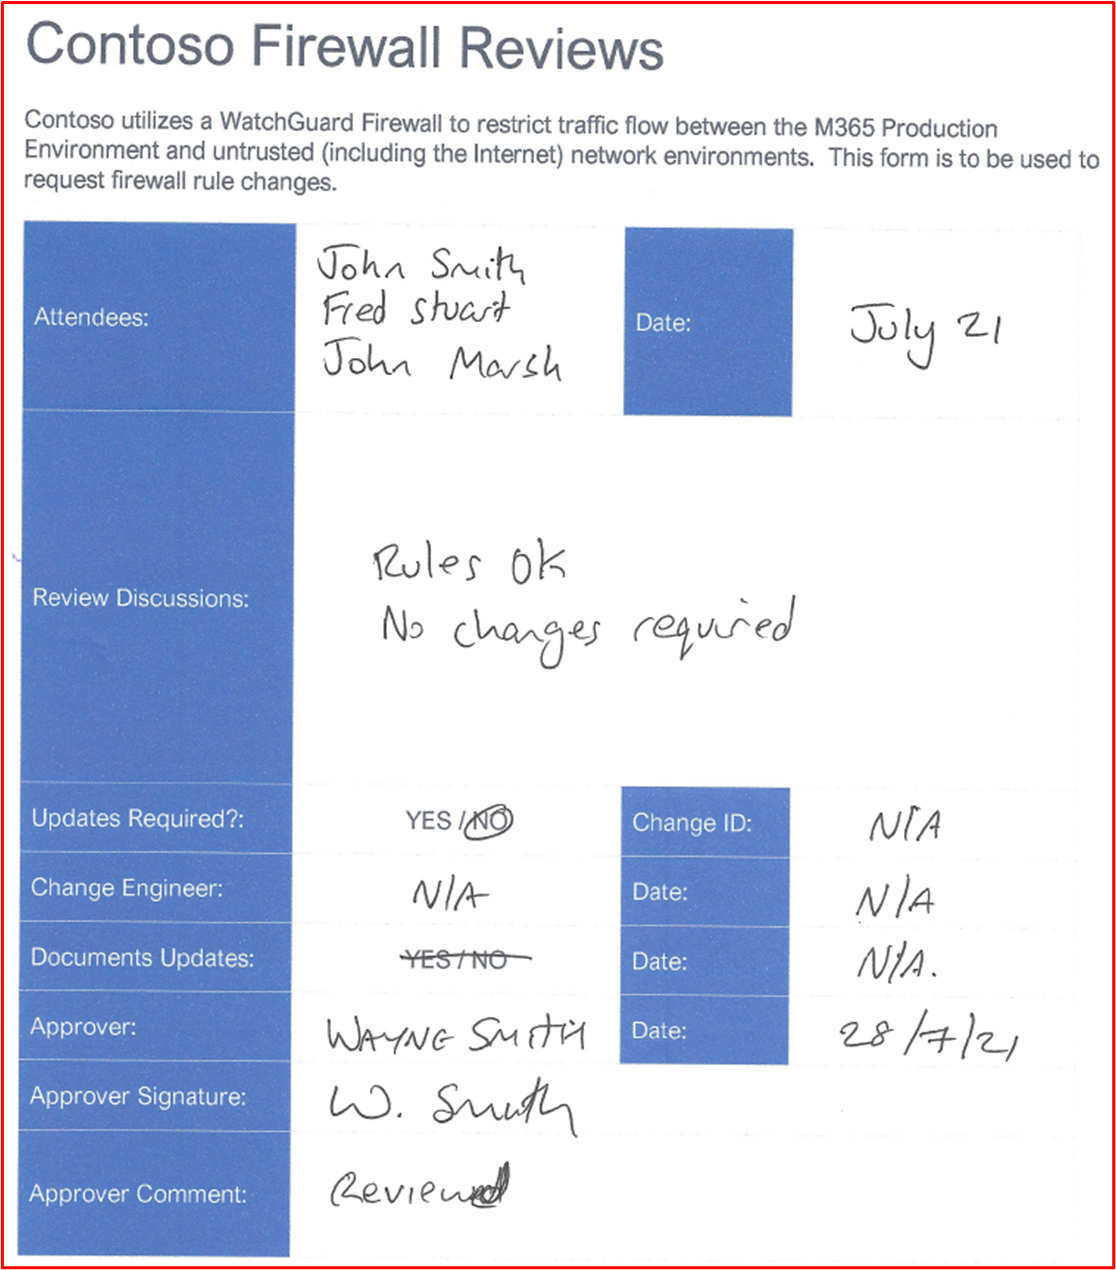 Contoso Firewall Reviews
Contoso utilizes a WatchGuard Firewall to restrict traffic flow between the M365 Production
Environment and untrusted (including the Internet) network environments.  This form is to be used to
request firewall rule changes.
Attendees:
John Smith
Fred Stuart
John Marsh
Date:
July 21
Review Discussions:
Rules OK
No changes required
Updates Required?:
YES / NO
Change ID:
N/A
Change Engineer:
N/A
Date:
N/A
Documents Updates:
YES / NO
Date:
N/A.
Approver:
WAYNE SMITH
Date:
28/7/21
Approver Signature:
W. Smith
Approver Comment:
Reviewed